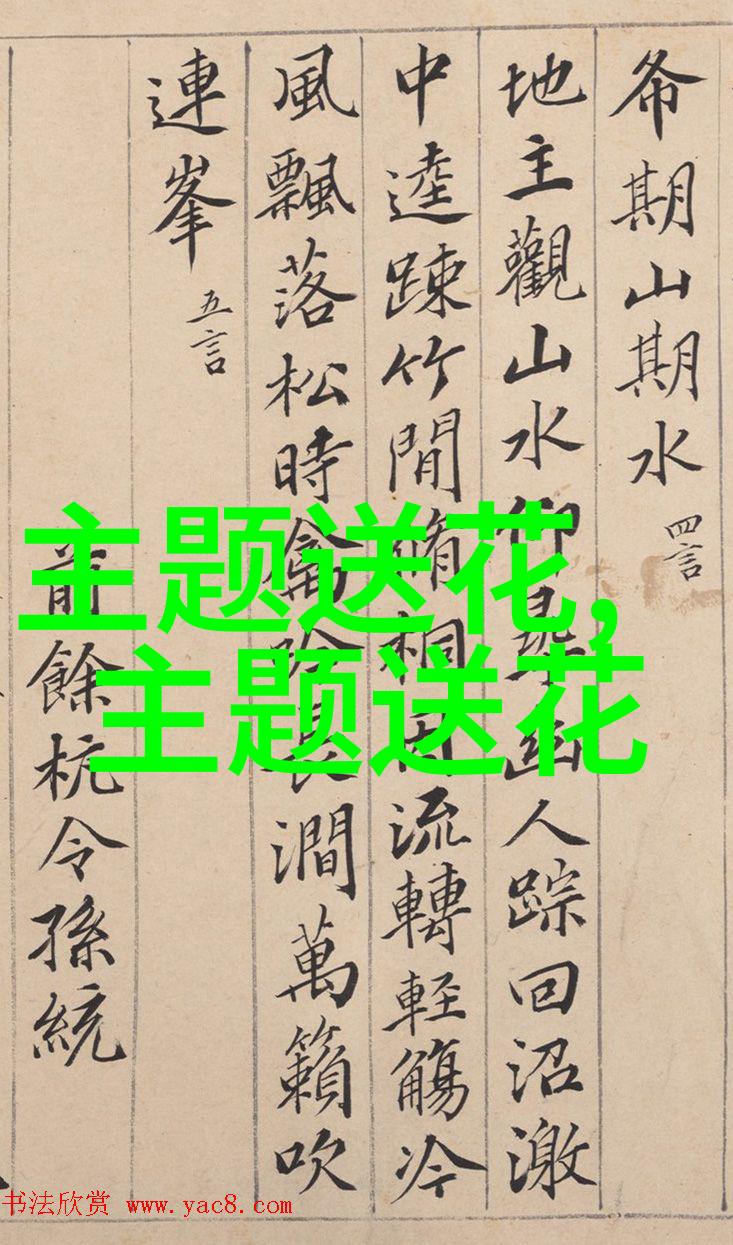 希期山期水 四言
地主觀山水仰尋幽人踪回沼激
中逵踈竹間脩桐因流轉輕觴冷
風飄落松時禽吟長澗萬籟吹
連峯 五言
前餘杭令孫統
主题送花,
主题送花
书法欣赏 www.yac8.com